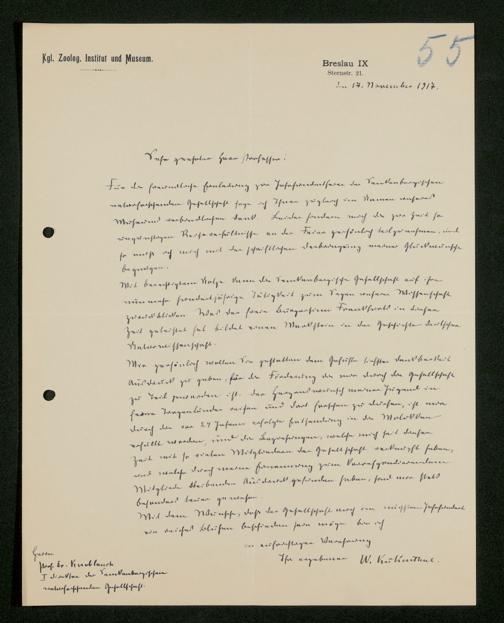 55
Kgl. Zoolog. Institut und Museum.
Breslau IX
Sternstr. 21.
den 17. November 1917.
Sehr geehrter Herr Professor!
Für die freundliche Einladung zur Jahrhundertfeier der Senckenbergischen
naturforschenden Gesellschaft sage ich Ihnen zugleich im Namen unseres
Museums verbindlichen Dank. Leider hindern mich die zur Zeit so
ungünstigen Reiseverhältnisse an der Feier persönlich teilzunehmen, und
so muss ich mich mit der schriftlichen Darbringung meiner Glückwünsche
begnügen.
Mit berechtigtem Stolze kann die Senckenbergische Gesellschaft auf ihre
nunmehr hundertjährige Tätigkeit zum Segen unserer Wissenschaft
zurückblicken. Was der freie Bürgersinn Frankfurts in dieser
Zeit geleistet hat bildet einen Markstein in der Geschichte deutscher
Naturwissenschaft.
Mir persönlich wollen Sie gestatten dem Gefühle tiefster Dankbarkeit
Ausdruck zu geben, für die Förderung die mir durch die Gesellschaft
zu Teil geworden ist. Der Herzenswunsch meiner Jugend in
ferne Tropenländer reisen und dort forschen zu dürfen, ist mir
durch die vor 24 Jahren erfolgte Entsendung in die Molukken
erfüllt worden, und die Beziehungen, welche mich seit dieser
Zeit mit so vielen Mitgliedern der Gesellschaft verknüpft haben,
und welche durch meine Ernennung zum korrespondierenden
Mitgliede bleibenden Ausdruck gefunden haben, sind mir stets
besonders teuer gewesen.
Mit dem Wunsche, dass der Gesellschaft noch im Jahrhundert
ein reiches Blühen beschieden sein möge bin ich
in aufrichtiger Verehrung
Ihr ergebener W. Kükenthal.
Herrn
Prof. Dr. Knoblauch
I Direktor der Senckenbergischen
naturforschenden Gesellschaft.